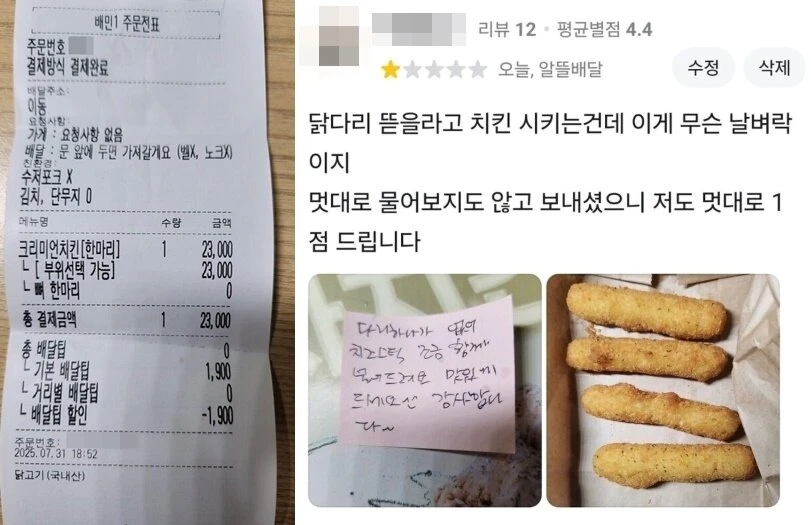 배민1 주문전표
주문번호
결제방식 결제완료
배달주소:
이동
요청사항:
가게 : 요청사항 없음
배달 : 문 앞에 두면 가져갈게요 (벨X, 노크X)
친환경:
수저포크 X
김치, 단무지 O
메뉴명 수량 금액
크리미언치킨[한마리] 1 23,000
└ [ 부위선택 가능] 23,000
└ 뼈 한마리 0
총 결제금액 1 23,000
총 배달팁 0
└ 기본 배달팁 1,900
└ 거리별 배달팁 0
└ 배달팁 할인 -1,900
주문번호:
2025.07.31 18:52
닭고기(국내산)
리뷰 12 · 평균별점 4.4
오늘, 알뜰배달
수정
삭제
닭다리 뜯을라고 치킨 시키는건데 이게 무슨 날벼락
이지
멋대로 물어보지도 않고 보내셨으니 저도 멋대로 1
점 드립니다
다리하나가 없어
치즈스틱 조금 함께
보내드려요 맛있게
드세요 감사합니
다~